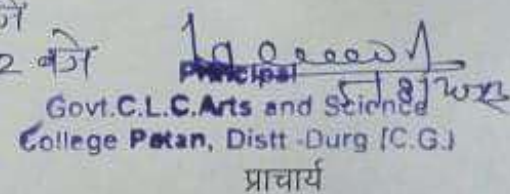 2 बजे
Principal
Govt.C.L.C.Arts and Science
College Patan, Distt-Durg (C.G.)
प्राचार्य